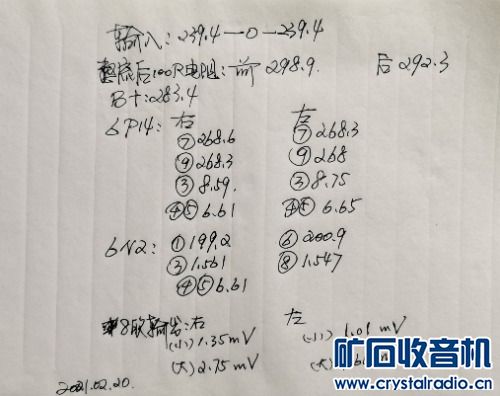 输入: 239.4—0—239.4
整流后100R电阻: 前 298.9. 后 292.3
B+: 283.4
6P14: 右 左
⑦268.6 ⑦268.3
⑨268.3 ⑨268
③8.59. ③8.75
④⑤6.61 ④⑤6.65
6N2: ①199.2 ⑥200.9
③1.561 ⑧1.547
④⑤6.61
8欧输出: 右 左
(小) 1.35mV (小) 1.01 mV
(大) 2.75 mV
2021.02.20.
矿石收音机
www.crystalradio.cn